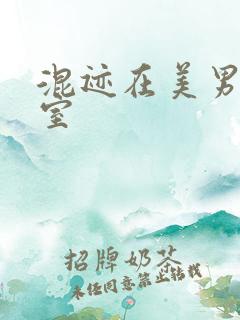 混迹在美男
室
招牌奶茶
未经同意禁止转载